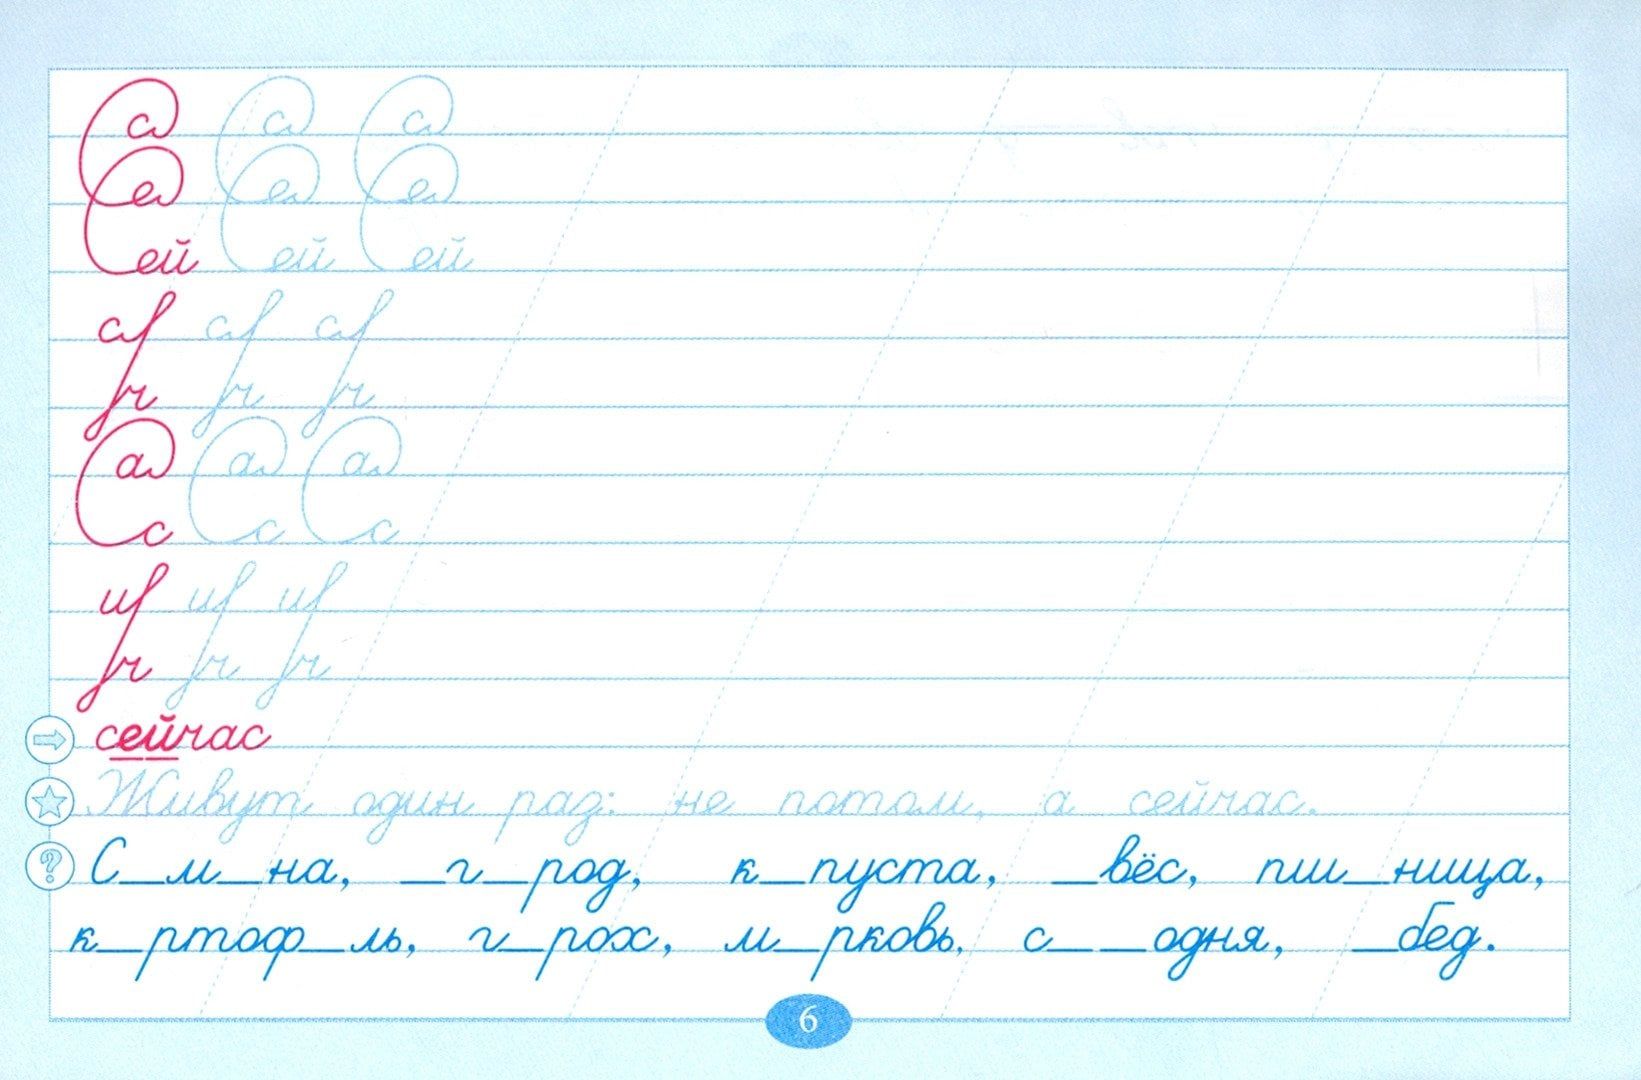 Са Са Са
Се Се Се
Сей Сей Сей
са са са
ч ч ч
Са Са Са
с с с
и и и
ч ч ч
сейчас
Живут один раз: не потом, а сейчас.
С_м_на, _г_род, к_пуста, _вёс, пш_ница,
к_ртоф_ль, г_рох, м_рковь, с_ _одня, _бед.
6